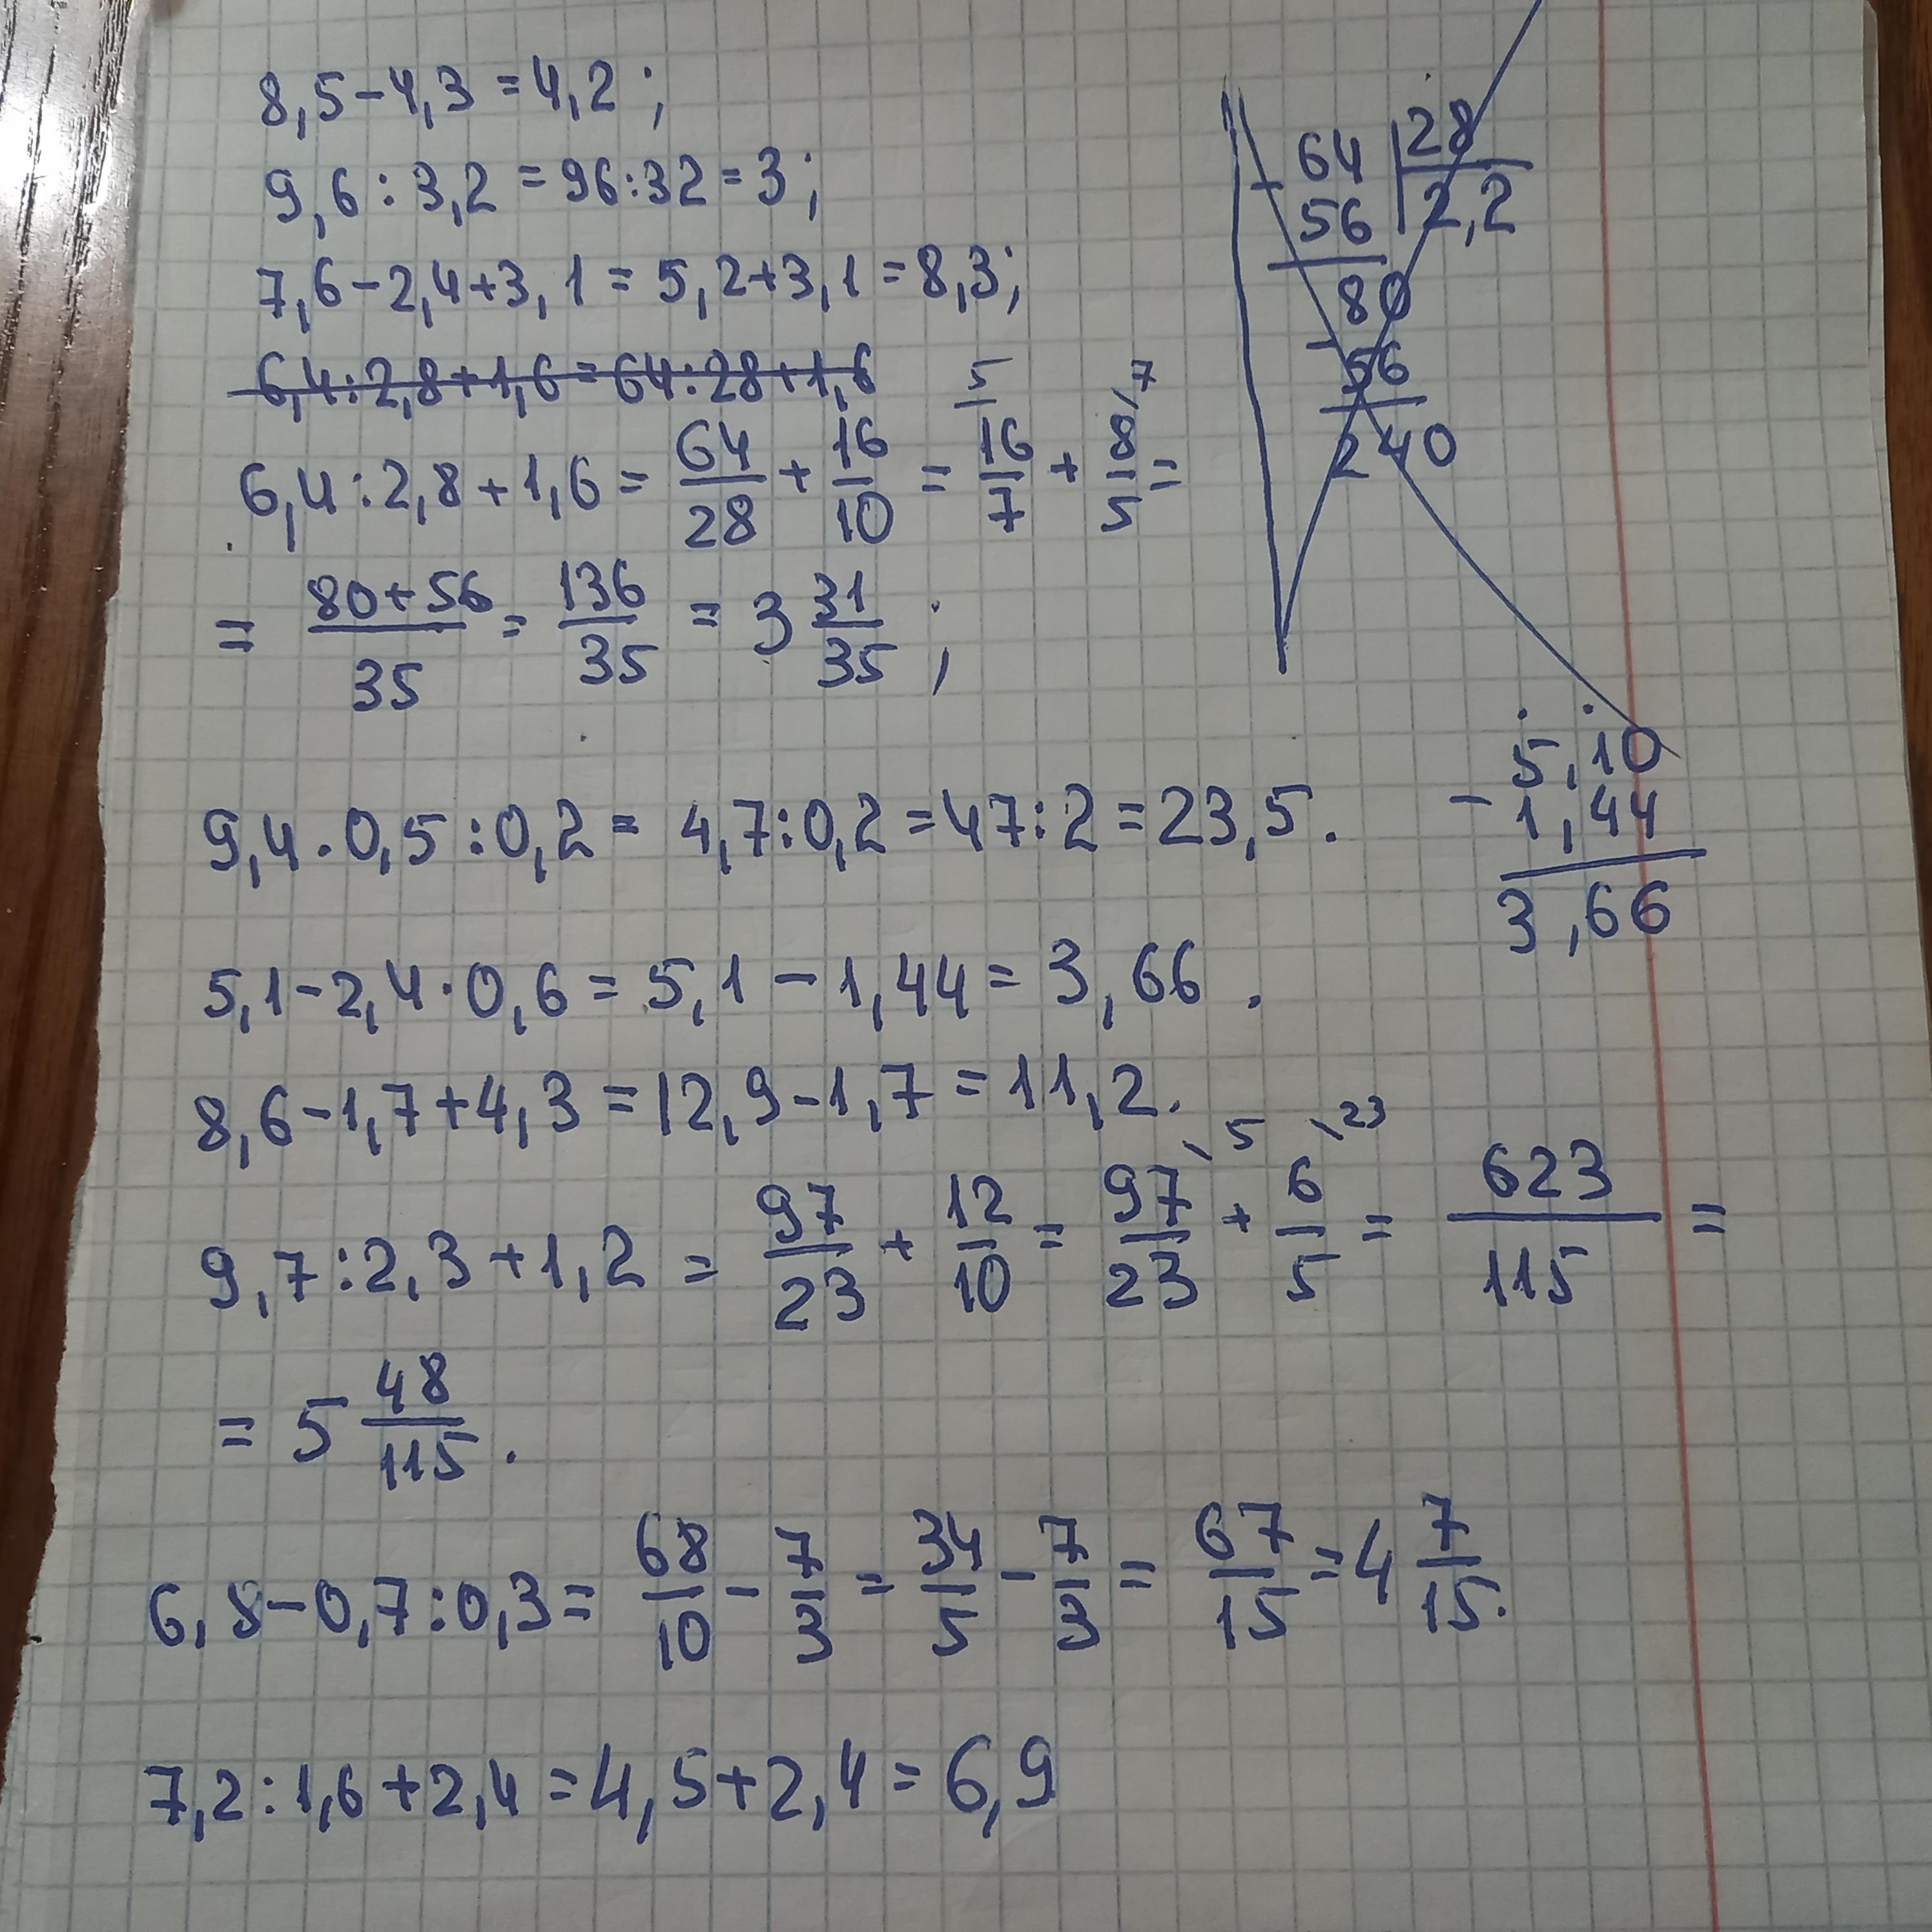 8,5-4,3=4,2;
9,6:3,2=96:32=3;
7,6-2,4+3,1=5,2+3,1=8,3;
6,4:2,8+1,6=64:28+1,6
6,4:2,8+1,6=64/28+16/10=16/7\5+8/5\7=
=(80+56)/35=136/35=3 31/35;
9,4·0,5:0,2=4,7:0,2=47:2=23,5.
5,1-2,4·0,6=5,1-1,44=3,66.
8,6-1,7+4,3=12,9-1,7=11,2.
9,7:2,3+1,2=97/23+12/10=97/23\5+6/5\23=623/115=
=5 48/115.
6,8-0,7:0,3=68/10-7/3=34/5-7/3=67/15=4 7/15.
7,2:1,6+2,4=4,5+2,4=6,9
64 28
-
56 2,2
80
-
56
240
5,10
-
1,44
3,66